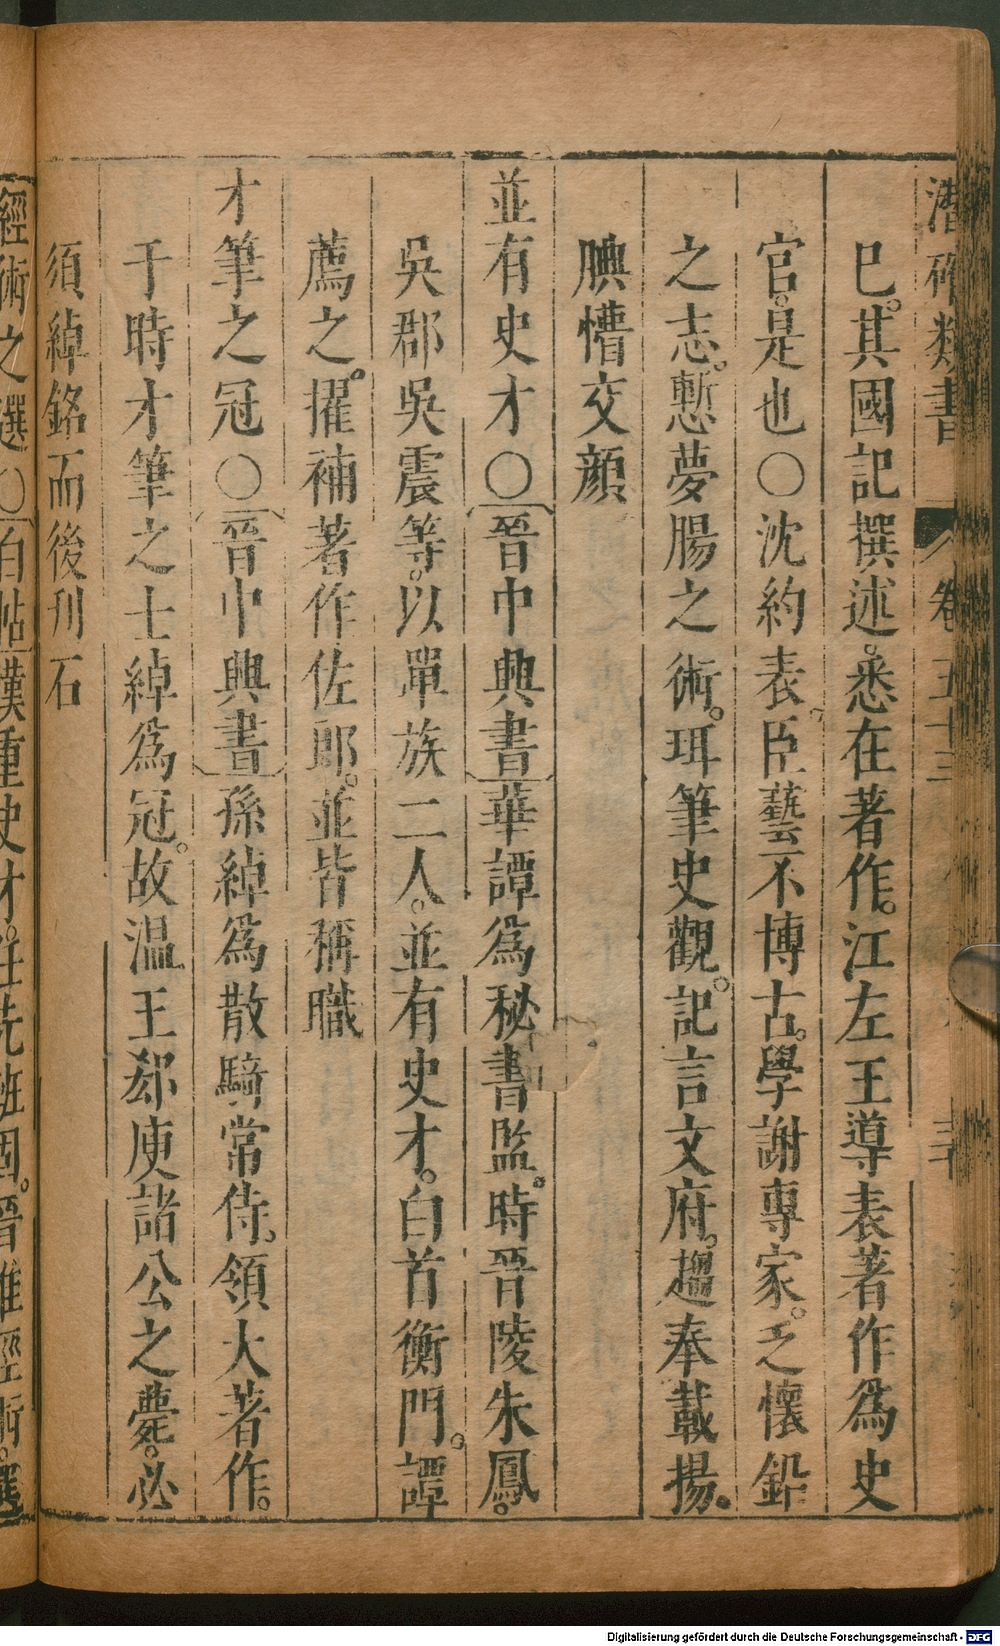 潛確類書 卷五十三
巳。其國記撰述。悉在著作。江左王導表著作爲史
官。是也〇沈約表。臣藝不博古。學謝專家。乏懷鉛
之志。慙夢腸之術。珥筆史觀。記言文府。趨奉載揚。
腆懵交顔
並有史才〇晉中興書華譚爲秘書監。時晉陵朱鳳。
吳郡吳震等。以單族二人。並有史才。白首衡門。譚
薦之。擢補著作佐郎。並皆稱職
才筆之冠〇晉中興書孫綽爲散騎常侍。領大著作。
于時才筆之士綽爲冠。故温王郄庾諸公之薨。必
須綽銘而後刋石
經術之選〇白帖漢重史才。班固。晉惟經術。選
Digitalisierung gefördert durch die Deutsche Forschungsgemeinschaft - DFG